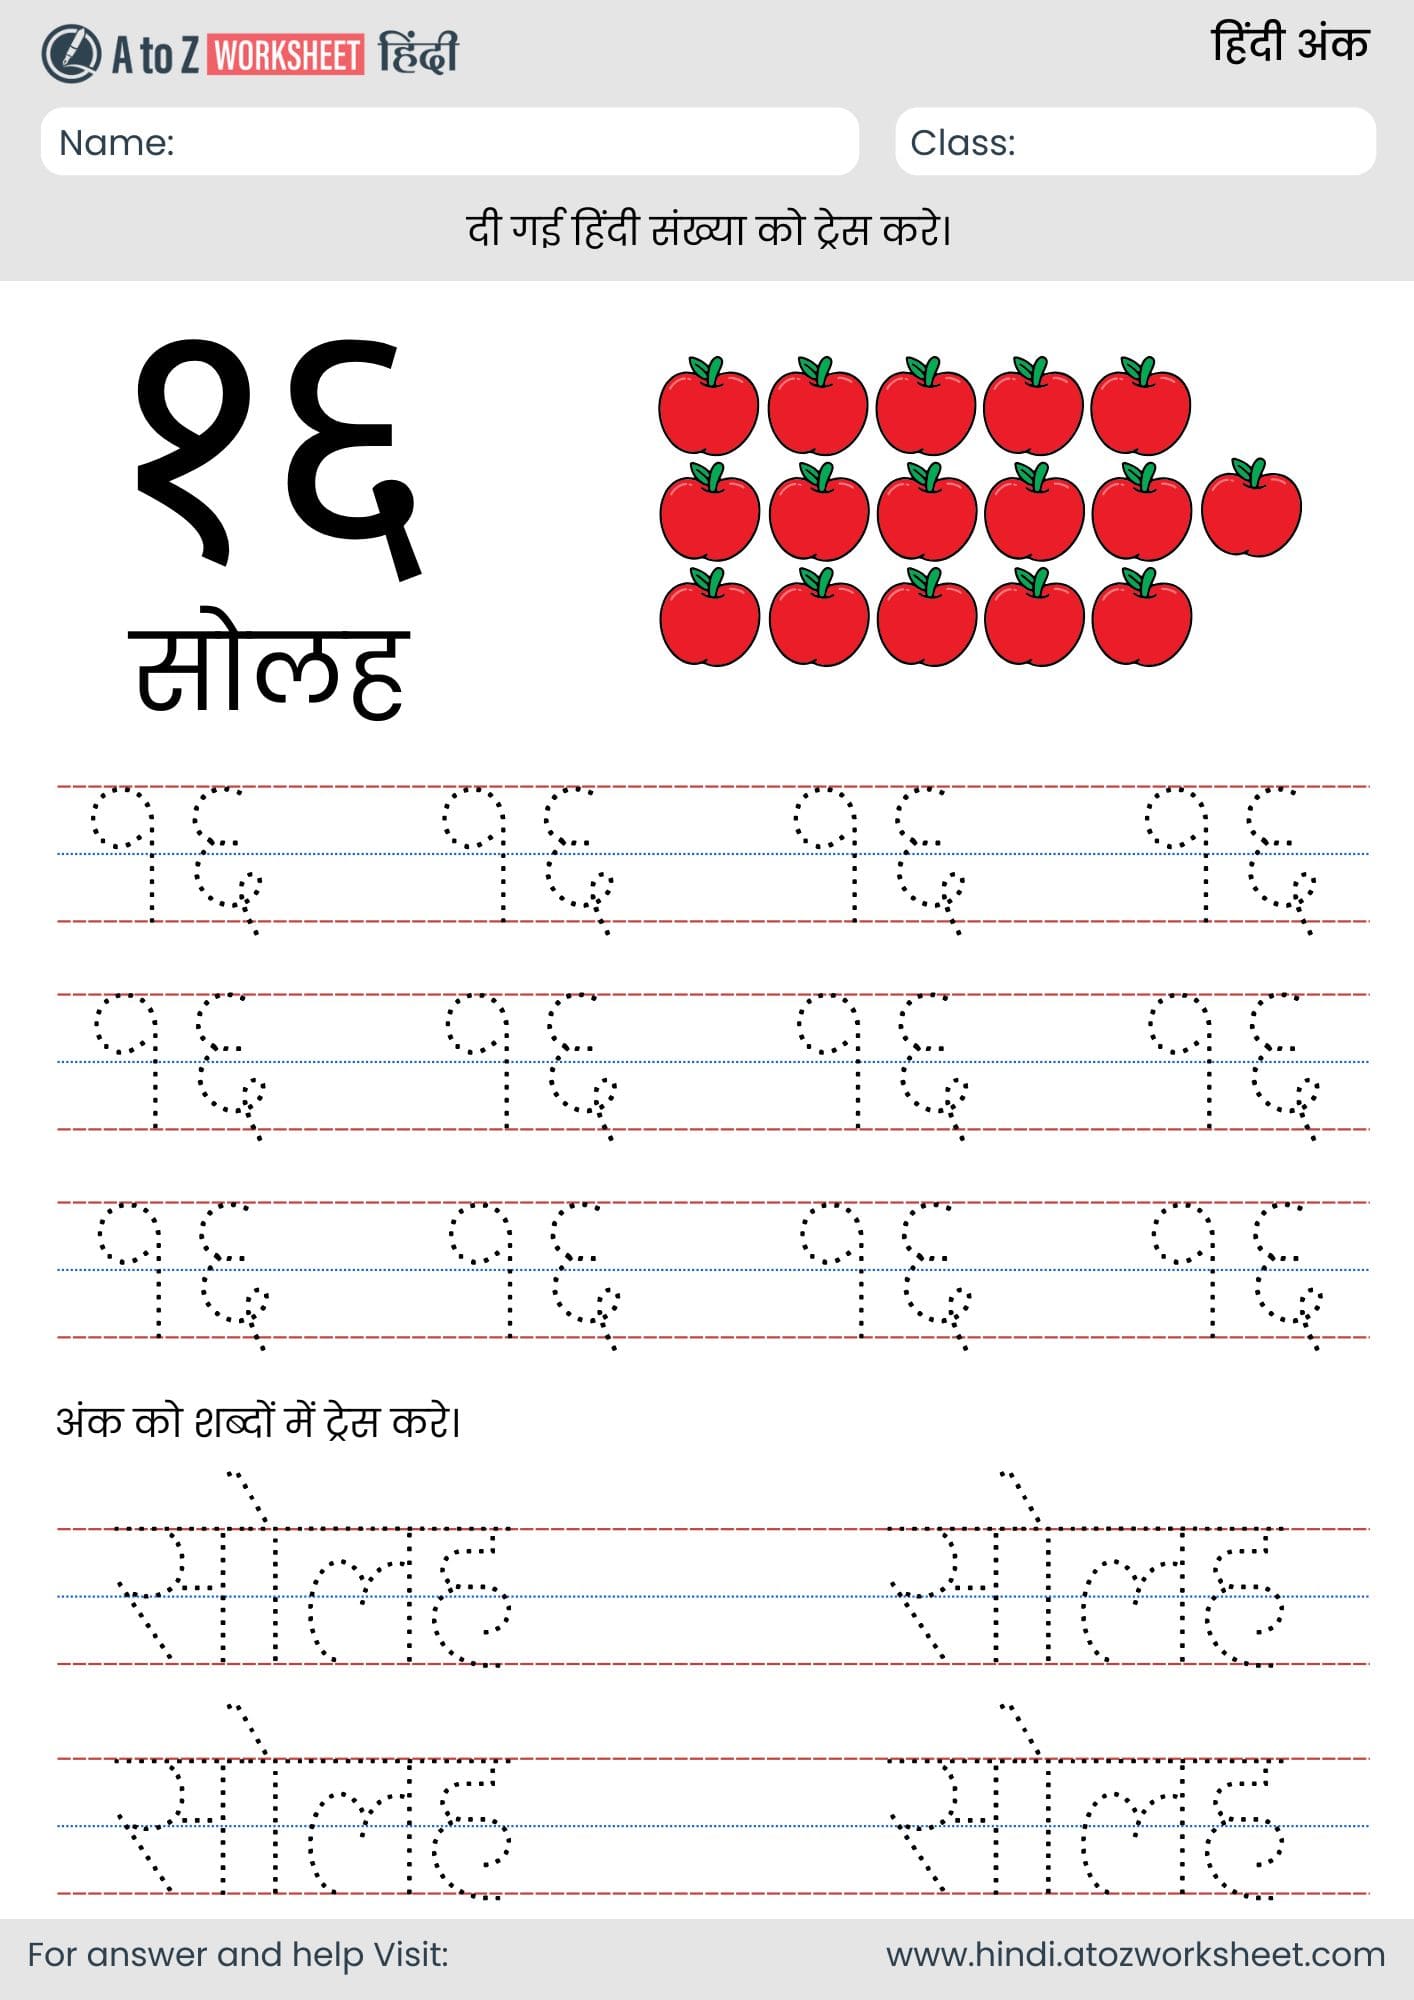 A to Z WORKSHEET हिंदी
हिंदी अंक
Name:
Class:
दी गई हिंदी संख्या को ट्रेस करे।
१६
सोलह
१६ १६ १६ १६
१६ १६ १६ १६
१६ १६ १६ १६
अंक को शब्दों में ट्रेस करे।
सोलह सोलह
सोलह सोलह
For answer and help Visit:
www.hindi.atozworksheet.com